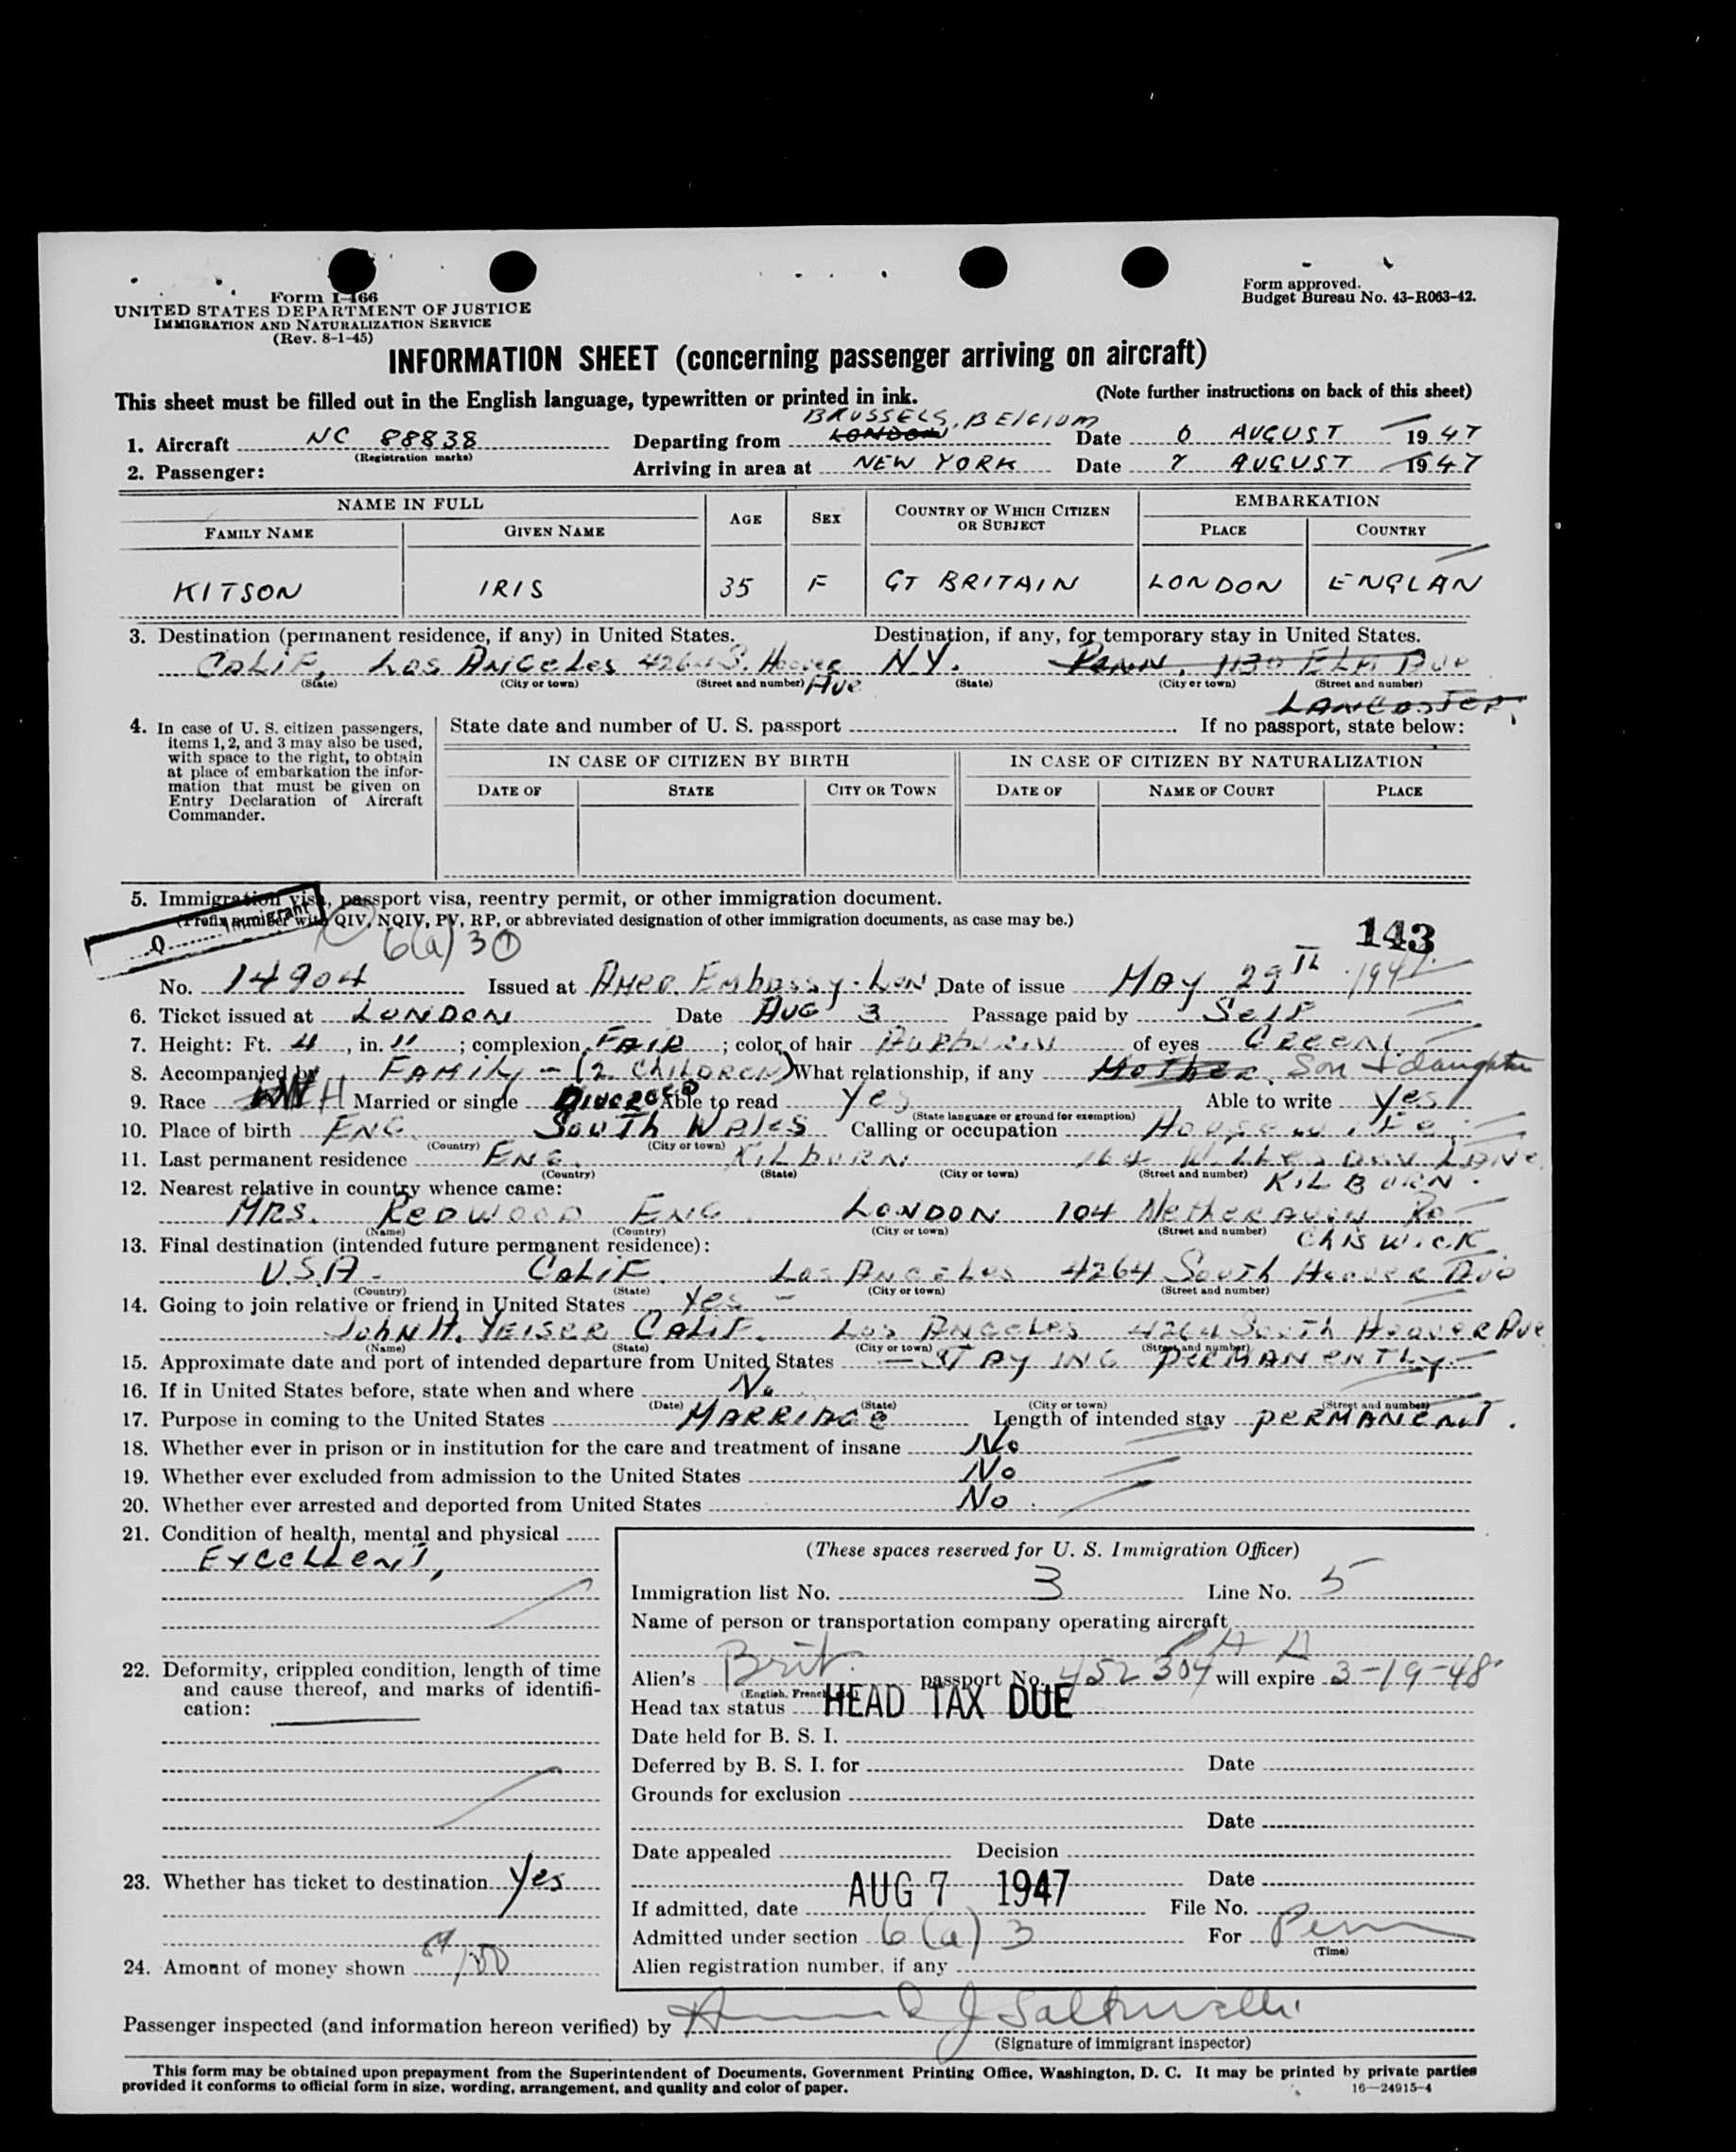 Form I-466
UNITED STATES DEPARTMENT OF JUSTICE
IMMIGRATION AND NATURALIZATION SERVICE
(Rev. 8-1-45)
Form approved.
Budget Bureau No. 43-R063-42.
INFORMATION SHEET (concerning passenger arriving on aircraft)
This sheet must be filled out in the English language, typewritten or printed in ink. (Note further instructions on back of this sheet)
BRUSSELS, BELGIUM
1. Aircraft NC 88838 Departing from LONDON Date 6 AUGUST 1947
(Registration marks)
2. Passenger: Arriving in area at NEW YORK Date 7 AUGUST 1947
NAME IN FULL AGE SEX COUNTRY OF WHICH CITIZEN OR SUBJECT EMBARKATION
FAMILY NAME GIVEN NAME PLACE COUNTRY
KITSON IRIS 35 F GT BRITAIN LONDON ENGLAN
3. Destination (permanent residence, if any) in United States. Destination, if any, for temporary stay in United States.
CALIF, Los Angeles 4264 S. Hoover N.Y. Penn, 1130 ELM Ave
(State) (City or town) (Street and number) Ave (State) (City or town) (Street and number)
LANCASTER,
4. In case of U. S. citizen passengers, items 1, 2, and 3 may also be used, with space to the right, to obtain at place of embarkation the information that must be given on Entry Declaration of Aircraft Commander.
State date and number of U. S. passport If no passport, state below:
IN CASE OF CITIZEN BY BIRTH IN CASE OF CITIZEN BY NATURALIZATION
DATE OF STATE CITY OR TOWN DATE OF NAME OF COURT PLACE
5. Immigration visa, passport visa, reentry permit, or other immigration document.
(Prefix number with QIV, NQIV, PV, RP, or abbreviated designation of other immigration documents, as case may be.)
Q Immigrant
6(a) 3 1
143
No. 14904 Issued at Amer. Embassy. Lon Date of issue MAY 29th 1947
6. Ticket issued at LONDON Date AUG 3 Passage paid by Self
7. Height: Ft. 4, in. 11; complexion FAIR; color of hair AUBHURN of eyes GREEN.
8. Accompanied by FAMILY - (2 CHILDREN) What relationship, if any Mother. Son + daughter
9. Race WH Married or single DIVORCED Able to read Yes Able to write Yes
(State language or ground for exemption)
10. Place of birth ENG. South Wales Calling or occupation Housewife.
(Country) (City or town)
11. Last permanent residence ENG. KILBURN 164 Willesdan LANe
(Country) (State) (City or town) (Street and number) KILBURN.
12. Nearest relative in country whence came:
MRS. REDWOOD ENG. LONDON 104 Netheravon Rd
(Name) (Country) (City or town) (Street and number) Chiswick
13. Final destination (intended future permanent residence):
U.S.A. CALIF. Los Angeles 4264 South Hoover Ave
(Country) (State) (City or town) (Street and number)
14. Going to join relative or friend in United States Yes -
John H. YEISER CALIF. Los Angeles 4264 South Hoover Ave
(Name) (State) (City or town) (Street and number)
15. Approximate date and port of intended departure from United States - STAYING PERMANENTLY -
16. If in United States before, state when and where No
(Date) (State) (City or town) (Street and number)
17. Purpose in coming to the United States MARRIAGE Length of intended stay PERMANENT.
18. Whether ever in prison or in institution for the care and treatment of insane No
19. Whether ever excluded from admission to the United States No
20. Whether ever arrested and deported from United States No.
21. Condition of health, mental and physical
Excellent,
22. Deformity, crippled condition, length of time and cause thereof, and marks of identification:
23. Whether has ticket to destination Yes
24. Amount of money shown 100
(These spaces reserved for U. S. Immigration Officer)
Immigration list No. 3 Line No. 5
Name of person or transportation company operating aircraft
PAA
Alien's Brit. passport No. 452304 will expire 3-19-48
(English, French
Head tax status HEAD TAX DUE
Date held for B. S. I.
Deferred by B. S. I. for Date
Grounds for exclusion
Date
Date appealed Decision
Date
If admitted, date AUG 7 1947 File No.
Admitted under section 6(a) 3 For Perm
(Time)
Alien registration number, if any
Passenger inspected (and information hereon verified) by
(Signature of immigrant inspector)
This form may be obtained upon prepayment from the Superintendent of Documents, Government Printing Office, Washington, D. C. It may be printed by private parties
provided it conforms to official form in size, wording, arrangement, and quality and color of paper. 16—24915-4